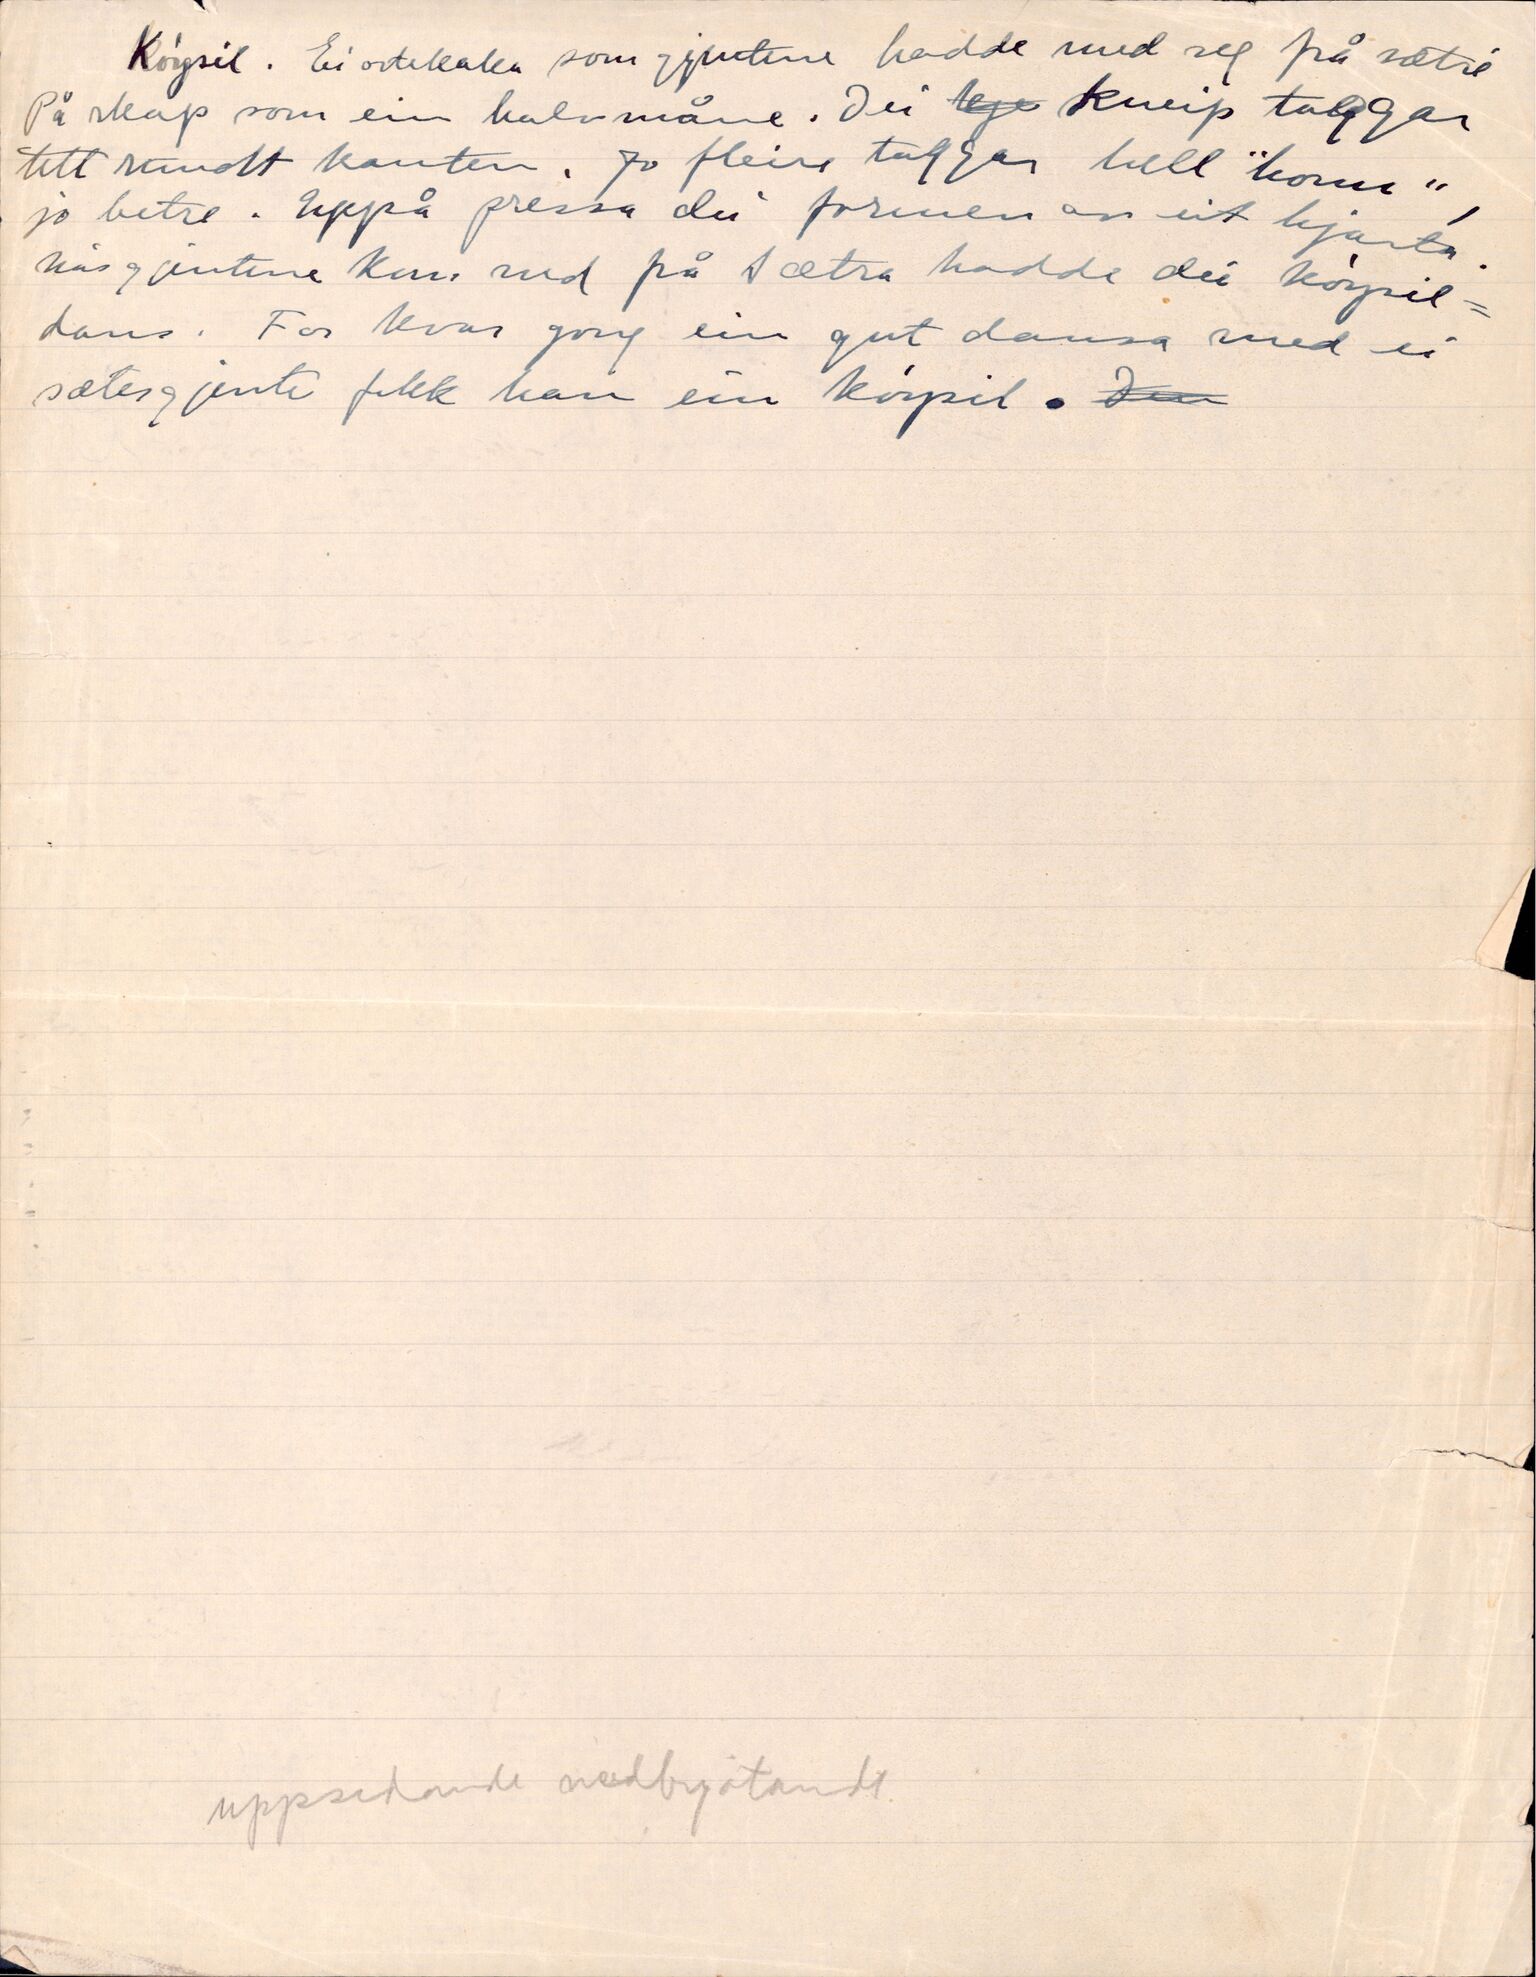 Kóysil. Ei ostekaka som gjentene hadde med seg på sætre
På skap som ein halvmåne. Dei kneip taggar
tett rundt kanten. Jo fleire taggar hell "horn",
jo betre. Uppå pressa dei formen av eit hjarta.
når gjentene kom ned frå sætra hadde dei kóysil=
dans. For kvar gong ein gut dansa med ei
sætesgjente fekk han ein kóysil. Den
uppsedande nedbrjótande